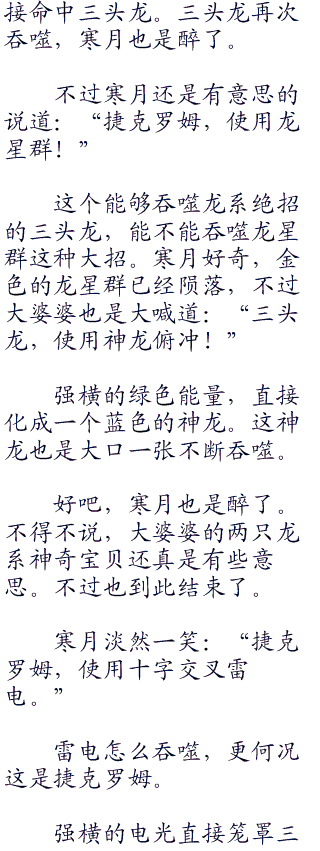 接命中三头龙。三头龙再次
吞噬，寒月也是醉了。
不过寒月还是有意思的
说道：“捷克罗姆，使用龙
星群！”
这个能够吞噬龙系绝招
的三头龙，能不能吞噬龙星
群这种大招。寒月好奇，金
色的龙星群已经陨落，不过
大婆婆也是大喊道：“三头
龙，使用神龙俯冲！”
强横的绿色能量，直接
化成一个蓝色的神龙。这神
龙也是大口一张不断吞噬。
好吧，寒月也是醉了。
不得不说，大婆婆的两只龙
系神奇宝贝还真是有些意
思。不过也到此结束了。
寒月淡然一笑：“捷克
罗姆，使用十字交叉雷
电。”
雷电怎么吞噬，更何况
这是捷克罗姆。
强横的电光直接笼罩三